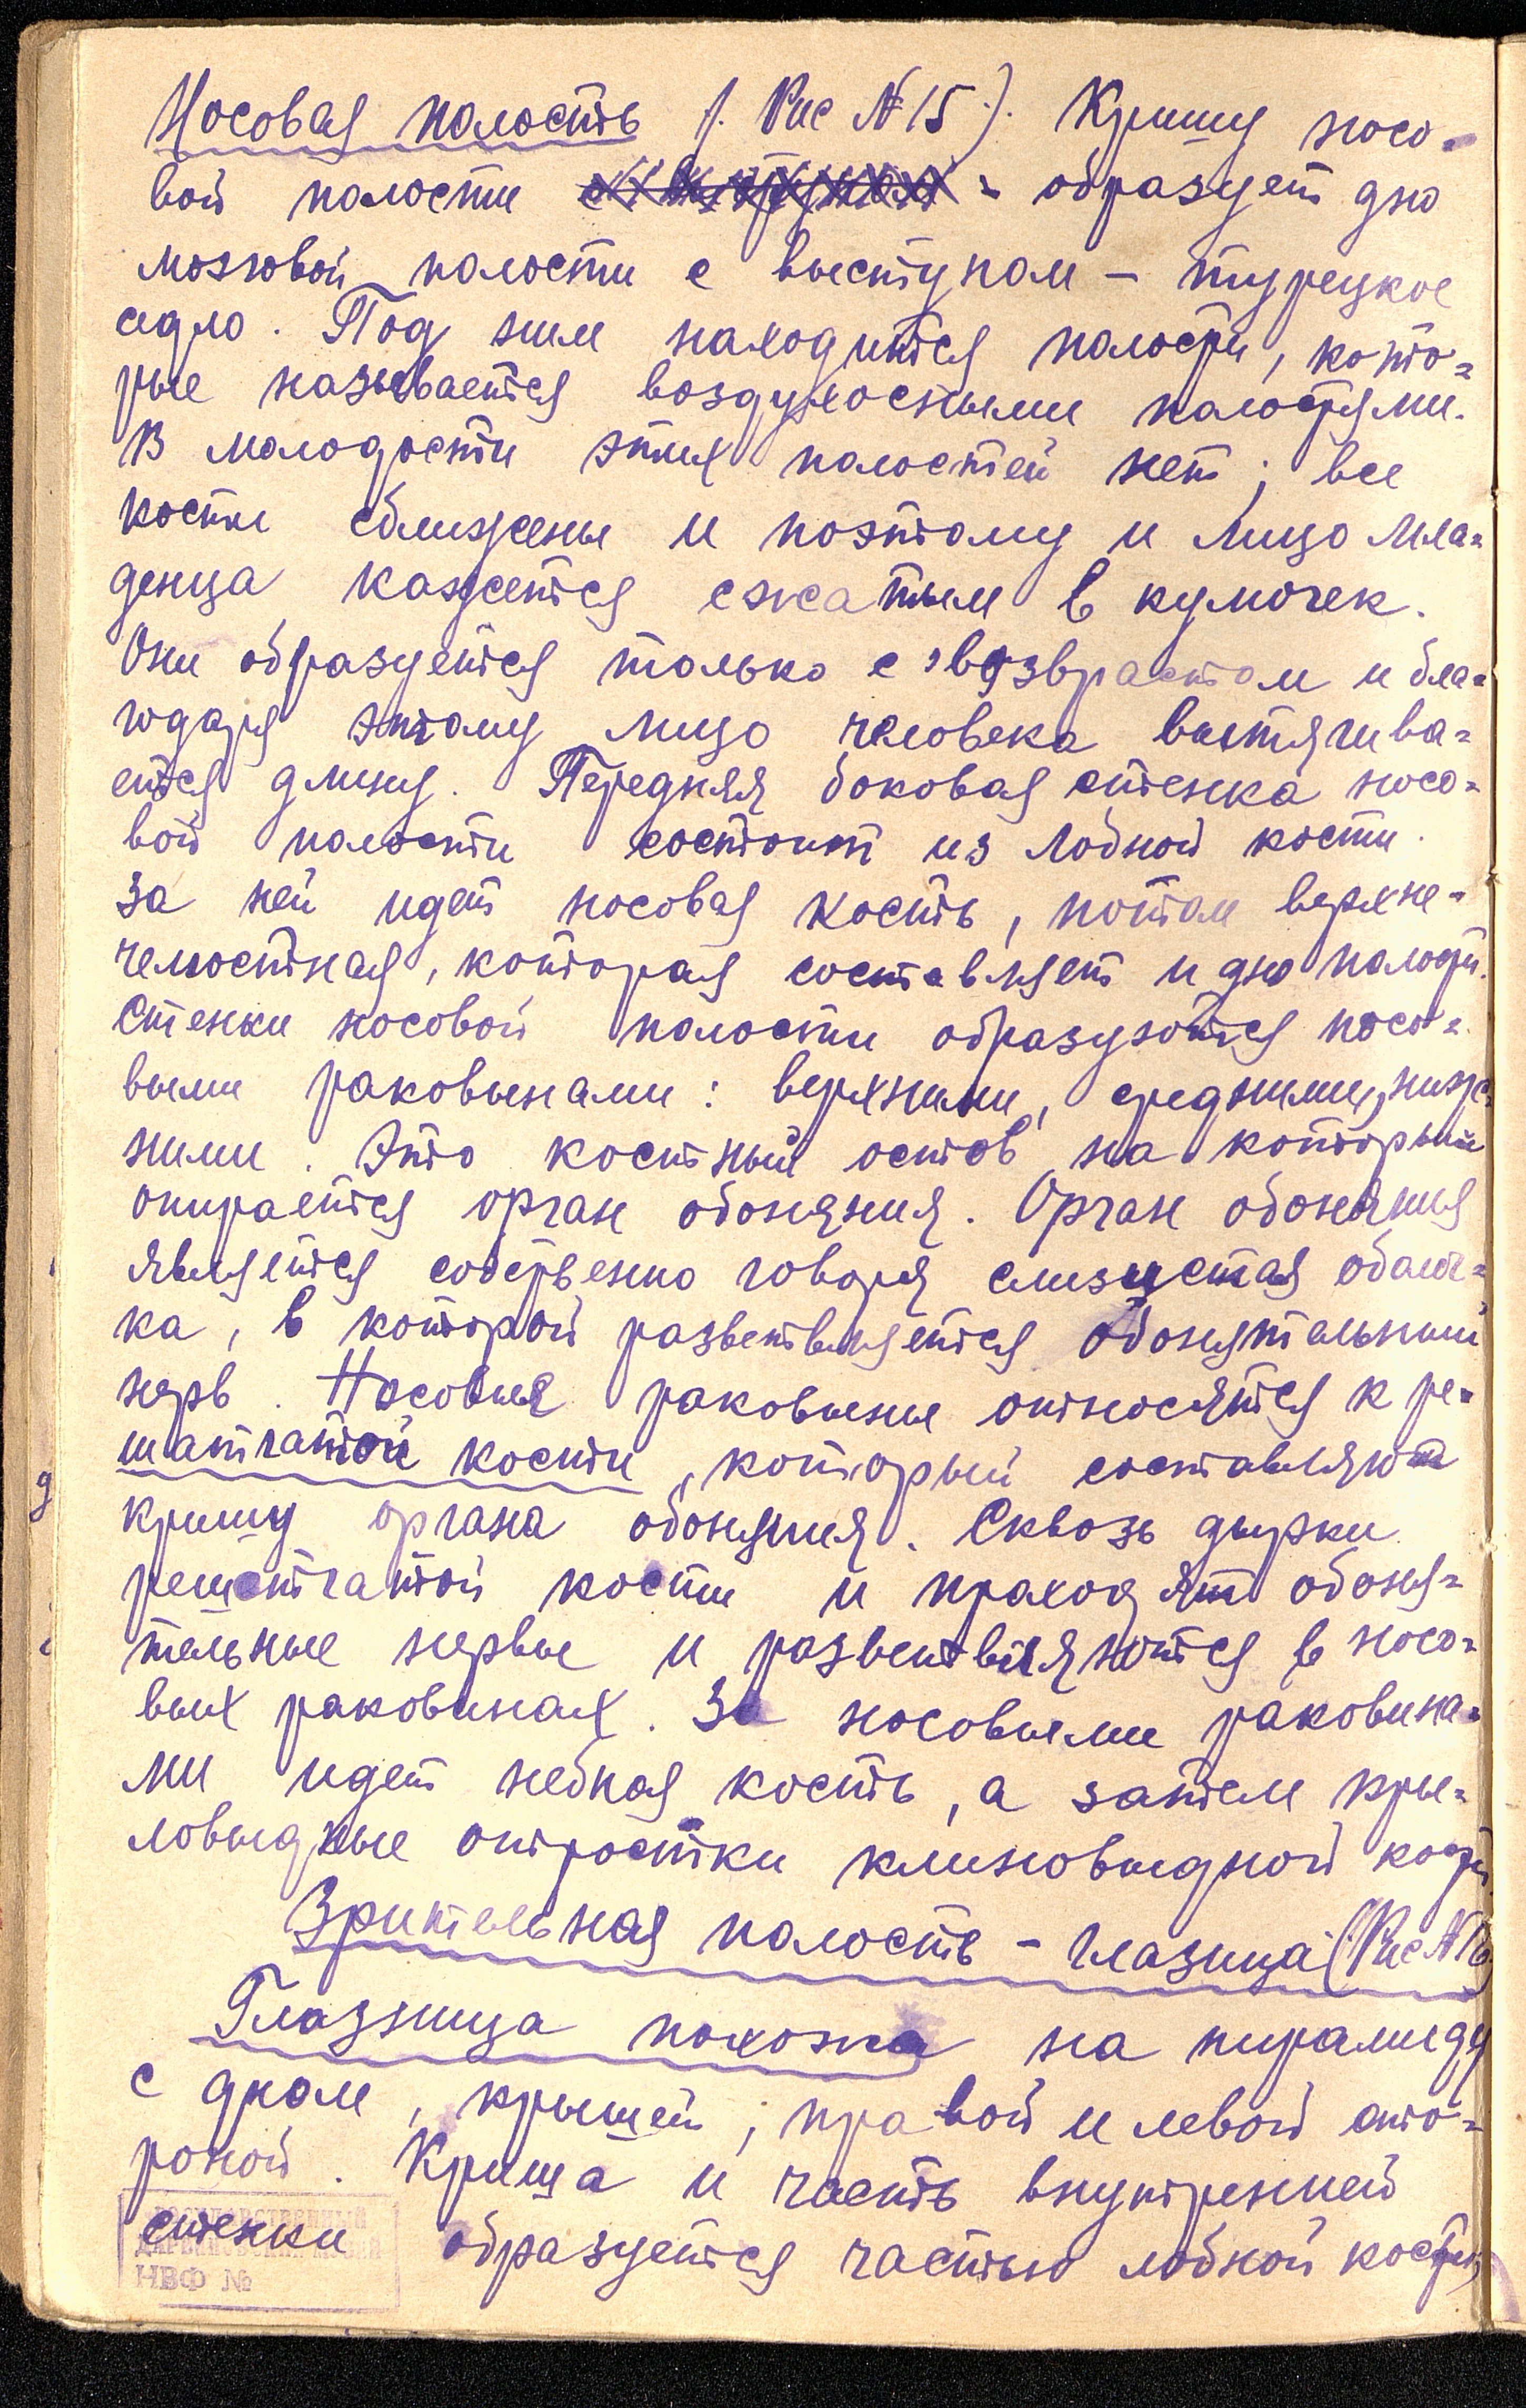 Носовая полость (. Рис № 15). Крышу носо-
вой полости - образует дно
мозговой полости с выступом - турецкое
седло. Под ним находится полости, кото-
рые называется воздухосными полостями.
В молодости этих полостей нет; все
кости сближены и поэтому и лицо мла-
денца кажется сжатым в кулючек.
Они образуется только с возврастом и бла-
годаря этому лицо человека вытягива-
ется длину. Передняя боковая стенка носо-
вой полости состоит из лобной кости.
За ней идет носовая кость, потом верхне-
челюстная, которая составляет и дно полости.
Стенки носовой полости образуются носо-
выми раковынами: верхними, средними, ниж-
ними. Это костный остов на который
опирается орган обоняния. Орган обоняния
является собственно говоря слизистая оболоч-
ка, в которой разветвляется обонятельный
нерв. Носовыя раковыны относятся к ре-
шатчатой кости, который составляют
крышу органа обоняния. Сквозь дырки
решетчатой кости и проходят обоня-
тельные нервы и разветвляются в носо-
вых раковинах. За носовыми раковина-
ми идет небная кость, а затем кры-
ловыдные отростки клиновыдной кости.
Зрительная полость - глазица (Рис № 16)
Глазница похожа на пирамиду
с дном, крышей, правой и левой сто-
роной. Крыша и часть внутренней
стенки образуется частью лобной кости,
ГОСУДАРСТВЕННЫЙ
ДАРВИНОВСКИЙ МУЗЕЙ
НВФ №